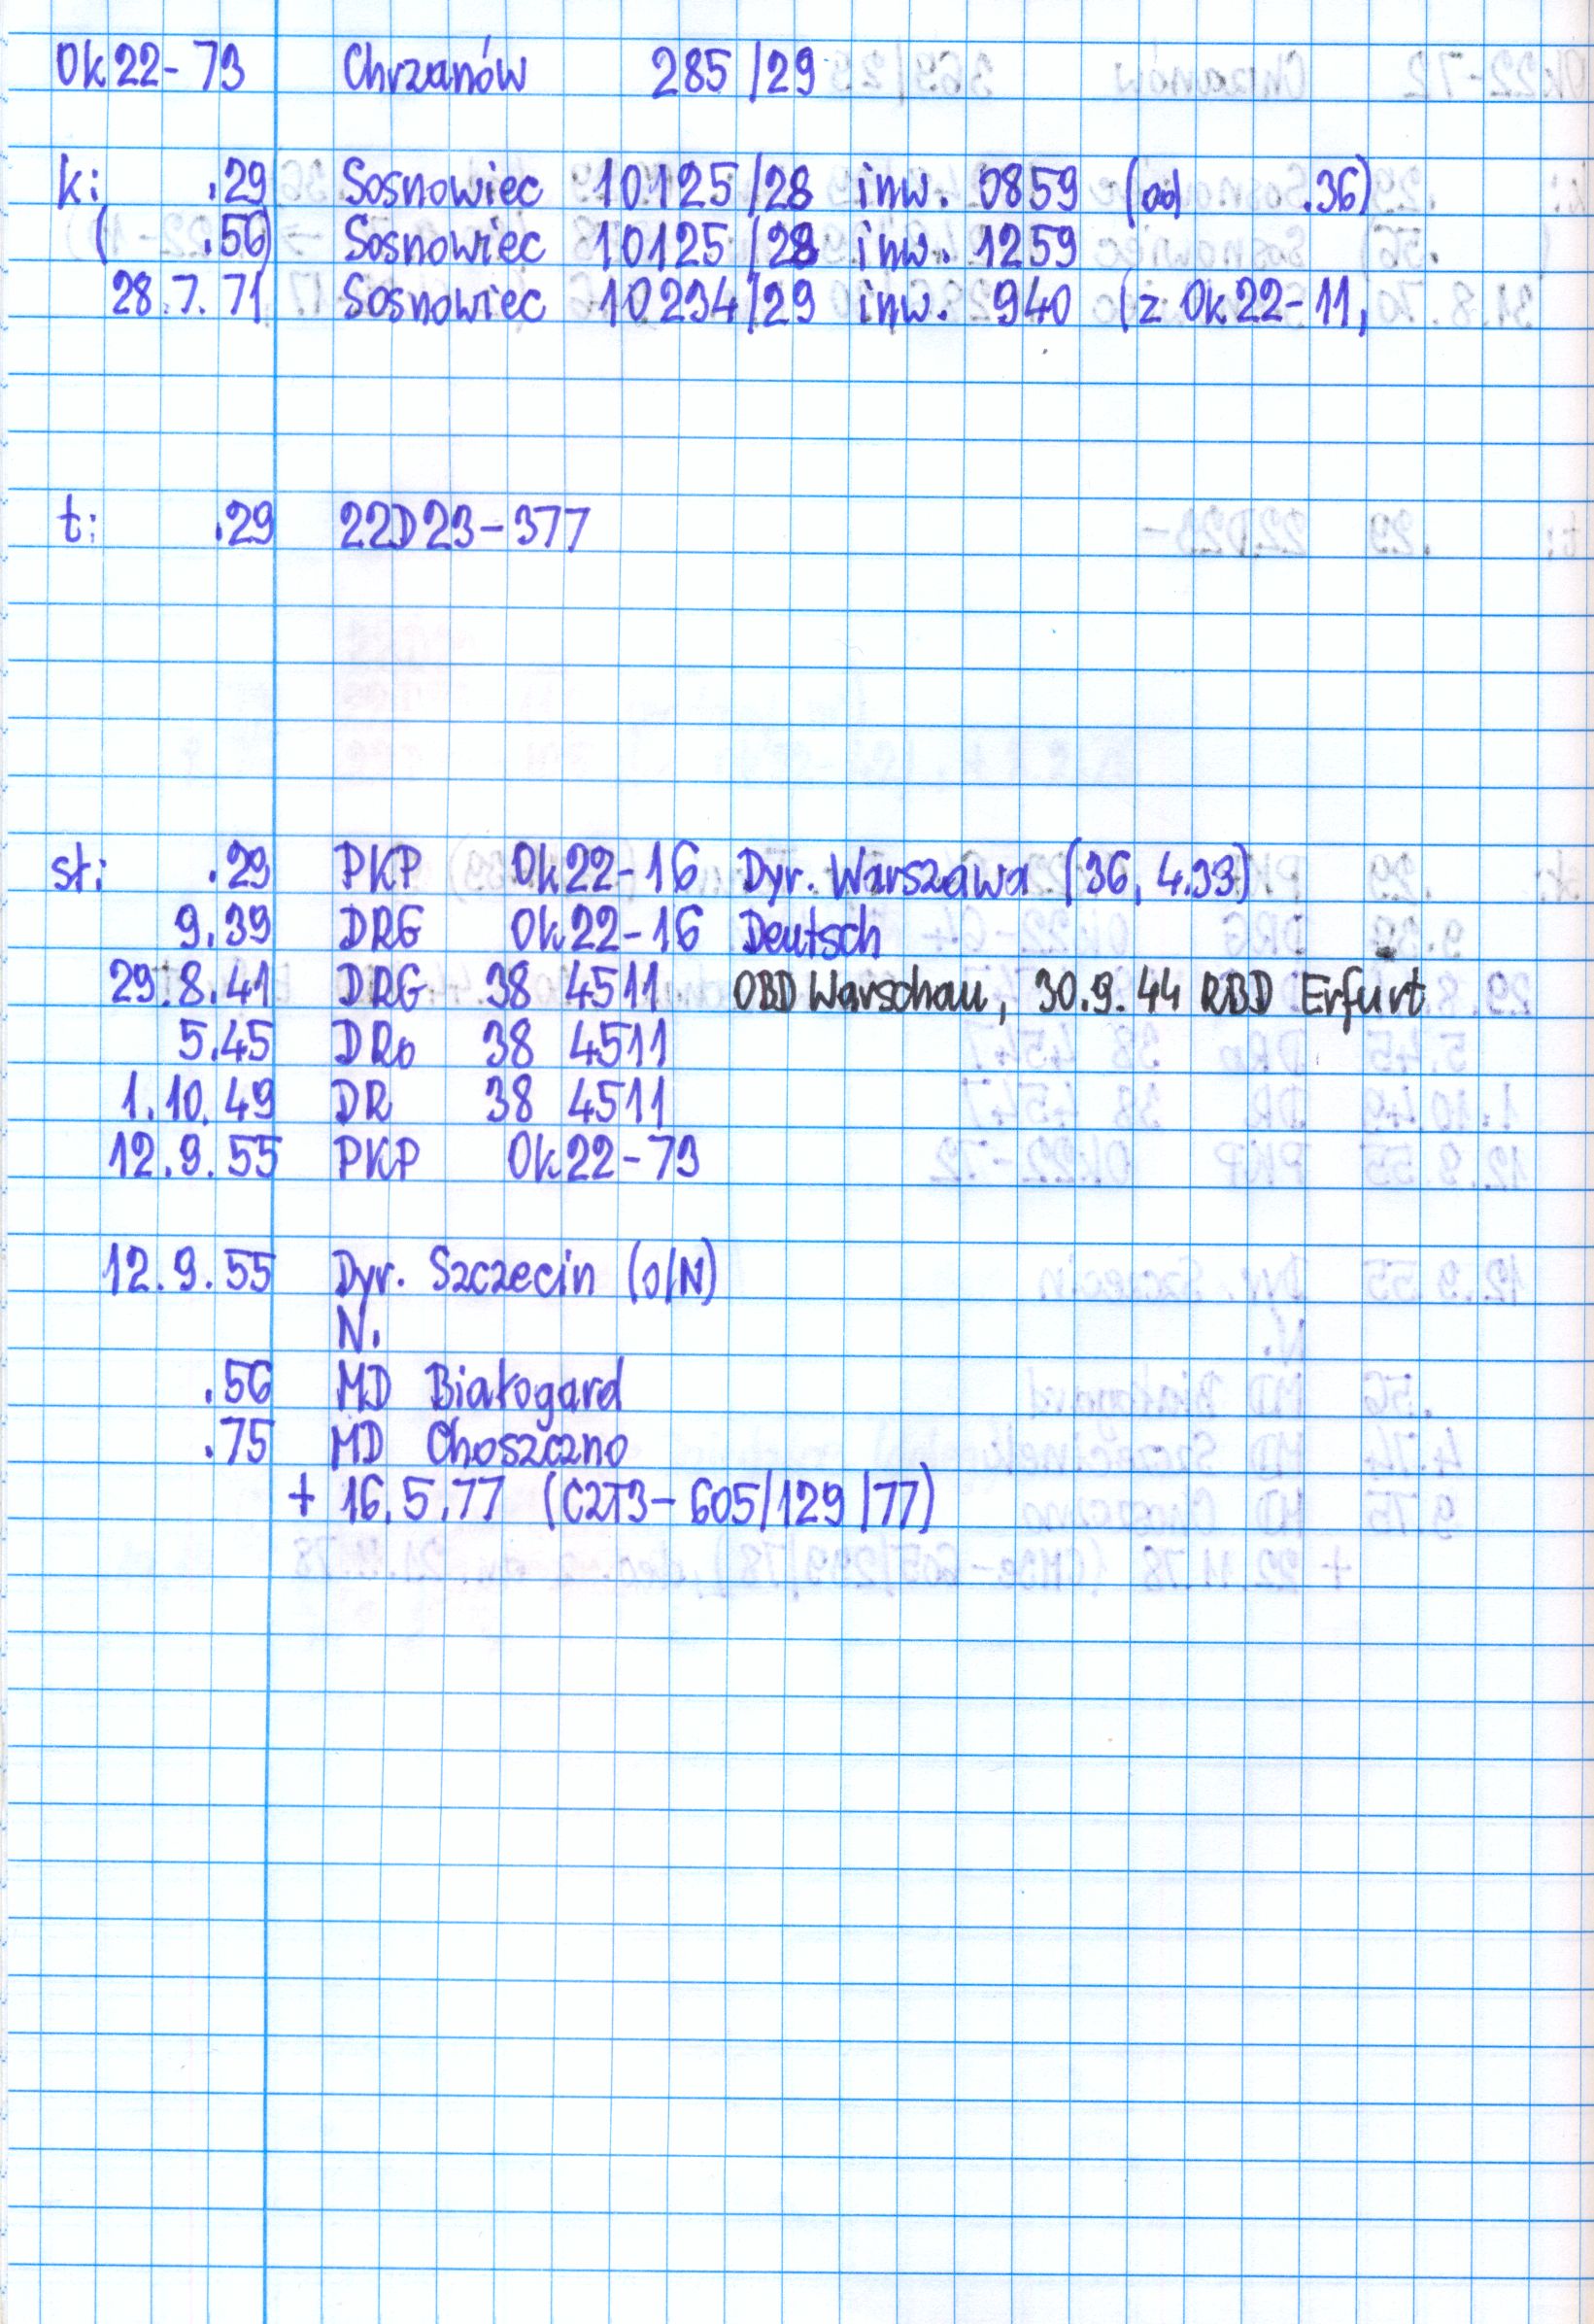 Ok22-73 Chrzanów 285/29
k: .29 Sosnowiec 10125/28 inw. 0859 (od .36)
( .56) Sosnowiec 10125/28 inw. 1259
28.7.71 Sosnowiec 10234/29 inw. 940 (z Ok22-11,
t: .29 22D23-377
st: .29 PKP Ok22-16 Dyr. Warszawa (36, 4.39)
9.39 DRG Ok22-16 Deutsch
29.8.41 DRG 38 4511 OBD Warschau, 30.9.44 RBD Erfurt
5.45 DRo 38 4511
1.10.49 DR 38 4511
12.9.55 PKP Ok22-73
12.9.55 Dyr. Szczecin (o/N)
N.
.56 MD Białogard
.75 MD Choszczno
+ 16.5.77 (C2T3-605/129/77)